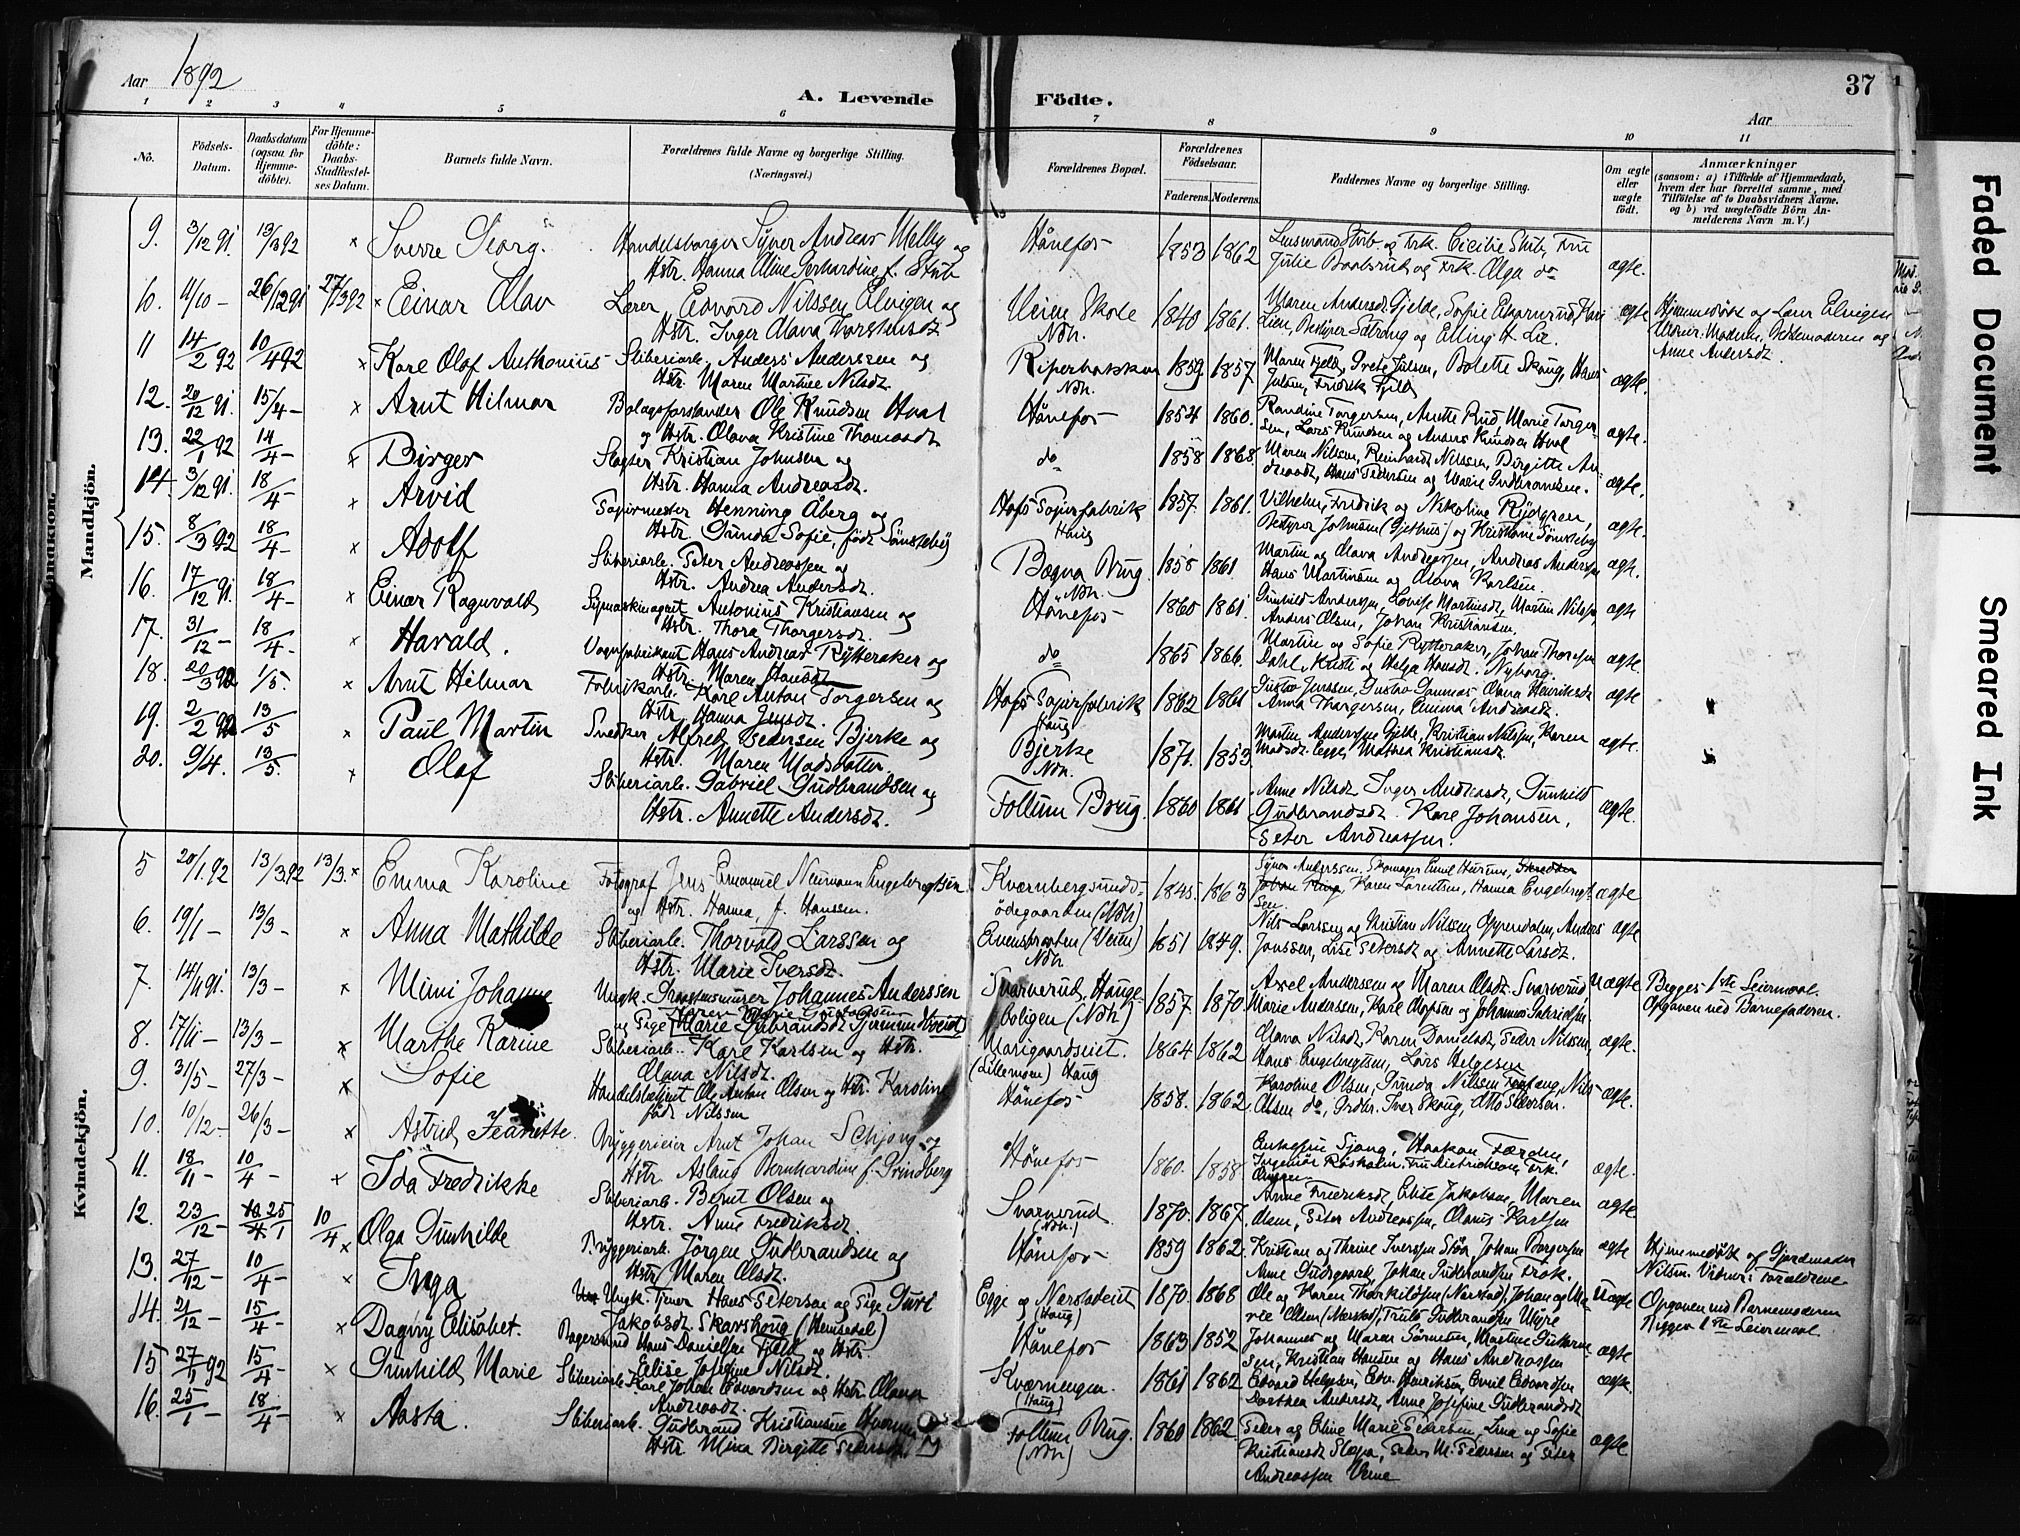 Aar 1892
A. Levende Födte.
37
Aar
1 2 3 4 5 6 7 8 9 10 11
No.
Födsels-Datum.
Daabsdatum (ogsaa for Hjemme-döbte).
For Hjemme-döbte: Daabs-Stadfæstel-ses Datum.
Barnets fulde Navn.
Forældrenes fulde Navne og borgerlige Stilling.
(Næringsvei.)
Forældrenes Bopæl.
Forældrenes Födselsaar.
Faderens. Moderens.
Faddernes Navne og borgerlige Stilling.
Om ægte eller uægte födt.
Anmærkninger
(saasom: a) i Tilfælde af Hjemmedaab, hvem der har forrettet samme, med Tilföielse af to Daabsvidners Navne, og b) ved uægtefödte Börn An-melderens Navn m. V.)
Mandkjön.
9. 3/12 91 13/3 92 × Sverre Georg. Handelsborger Syver Andreas Melby og Hstr. Hanna Oline Gerhardine f. Stub Hönefos 1853 1862 Lensmand Stub og Frk. Cicilie Stub, Fru Julie og Frk. Olga do ægte.
10. 4/10 – 26/12 91 27/3 92 × Einar Olav Lærer Edvard Nilssen Elvigen og Hstr. Inger Olava Torstensdt. Veien Skole Ndh. 1840 1861. Maren Andersdt. Gjelde, Sofie Lien, Bestyrer Sætrang og Elling H. Lie. ægte Hjemmedöbt af Lærer Elvigen Moderen og Anne Andersdt.
11 14/2 92 10/4 92 × Karl Olaf Anthonius Sliberiarb. Anders Anderssen og Hstr. Maren Martine Nilsdt. Ndh. 1859 1857 Maren Fjeld, Grete Julsen, Bolette Skaug, Hans Julsen, Fredrik Fjeld ægte.
12. 20/12 91 15/4 – × Arnt Hilmar Bolagsforstander Ole Knudsen Hval og Hstr. Olava Kristine Thomasdt. Hönefos 1854 1860. Randine Torgersen, Anette Rud, Marie Torger-sen, Lars Knudsen og Anders Knudsen Hval ægte.
13. 22/1 92 14/4 – × Birger Slagter Kristian Johnsen og Hstr. Hanna Andreasdt. do 1858 1868 Maren Nilsen, Reinhardt Nilssen, Birgitte An-dreasdt, Hans Pedersen og Marie Gudbrandsen. ægte.
14. 3/12 91. 18/4 – × Arvid Papirmester Henning Åberg og Hstr. Gunda Sofie, födt Sönsteby Hofs Papirfabrik Haug 1857. 1861. Vilhelm, Fredrik og Nikoline Rydgren, Bestyrer Johnsen (Gjethus) og Kristiane Sönsteby ægte.
15. 8/3 92 18/4 – × Adolf Sliberiarb. Peter Andreassen og Hstr. Andrea Andersdt. Bægna Brug. Ndh. 1858 1861. Martin og Olava Andreassen, Andreas Anderssen Hans Martinsen og Olava Karlsen. ægte.
16. 17/12 91. 18/4 – × Einar Ragnvald Symaskinagent Antonius Kristiansen og Hstr. Thora Thorgersdt. Hönefos 1860 1861 Gunhild Anderssen, Lovise Martinsdt. Martin Nilssen, Anders Olsen, Johan Kristiansen. ægte
17. 31/12 – 18/4 – × Harald. Vognfabrikant Hans Andreas Rytteraker og Hstr. Maren Hansdt. do 1865 1866. Martin og Sofie Rytteraker, Johan Thoresen Dahl, Kristi og Helga Hansdt. Nyborg. ægte
18. 20/3 92 1/5. × Arnt Hilmar Fabrikarb. Karl Anton Torgersen og Hstr. Hanna Jensdt. Hofs Papirfabrik Haug 1862 1861 Gustav Jenssen, Gustav Olava Henriksdt. Anna Thorgersen, Emma Andreasdt. ægte
19. 2/2 92 13/5 × Paul Martin Snedker Alfred Pedersen Bjerke og Hstr. Maren Madsdatter Bjerke Ndh. 1871. 1853 Martin Anderssen Gjelde, Kristian Nilssen, Karen Madsdt. Egge, Mathea Kristiansdt. ægte.
20. 9/4. 13/5. × Olaf Sliberiarb. Gabriel Gudbrandsen og Hstr. Annette Andersdt. Follum Brug. 1860 1861 Anne Nilsdt. Inger Andreasdt, Gunhild Gudbrandsdt. Karl Johansen, Peter Andreassen. ægte.
Kvindekjön.
5 20/1 92 13/3 92 13/3. × Emma Karoline Fotograf Jens Emanuel Neumann Engebregtsen og Hstr. Hanna, f. Hanssen. Kværnbergsunds-ödegaarden (Ndh) 1845. 1863 Syver Anderssen, Skomager Emil Hurum, Karen Larentsen, Hanna Engebregt-sen ægte
6. 19/1 – 13/3 – × Anna Mathilde Sliberiarb. Thorvald Larssen og Hstr. Marie Iversdt. (Veien) Ndh. 1851 1849. Nils Larssen og Kristian Nilssen Oppendalen, Anders Janssen, Lise Petersdt og Annette Larsdt. ægte
7. 14/11 91. 13/3 – × Mimi Johanne Ungk. Johannes Anderssen og Pige Marie Gulbrandsdt Svarverud, Hauge-boligen (Ndh) 1857. 1870. Axel Anderssen og Maren Olsdt. Svarverud, Marie Andersen, Karl Olafsen og Johannes Gabrielsen. Uægte Begges 1ste Leiermaal. Opgaven ved Barnefaderen.
8. 17/11 – 13/3 – × Marthe Karine Sliberiarb. Karl Karlsen og Hstr. Olava Nilsdt. Marigaardseiet. (Lillemoen) Haug 1864 1862 Olava Nilsdt, Karen Danielsdt, Peder Nilssen, Hans Engebregtsen, Lars Helgesen ægte.
9. 31/5 – 27/3 – × Sofie Handelsbetjent Ole Anton Olsen og Hstr. Karoline födt Nilssen Hönefos 1858. 1862 Karoline Olsen, Gunda Nilsen, Nils Olsen do, Iver Skaug, Otto Pedersen. ægte.
10. 10/12 – 26/3 – × Astrid Jeanette. Bryggerieier Arnt Johan Schjong og Hstr. Aslaug Bernhardine f. Grindberg Hönefos 1860. 1858 Enkefru Sjong, Haakon Færden, Ingeniör Rösholm, Fru Dietrichson, Frk. ægte.
11. 18/11 – 10/4 – × Ida Fredrikke Sliberiarb. Bernt Olsen og Hstr. Anne Fredriksdt. Svarverud (Ndh.) 1870. 1867. Anne Fredriksdt, Elise Jakobsen, Maren Olsen, Peter Andreassen, Olaus Karlsen ægte
12. 23/12 – 10/4 25/1 10/4 × Olga Gunhilde Bryggeriarb. Jörgen Gudbrandsen og Hstr. Maren Olsdt. Hönefos 1859 1862. Kristian og Thrine Iverssen Stöa, Johan Borgersen Anne Gudsgaard, Johan Gudbrandsen Frok. ægte Hjemmedöbt af Gjordmoder Nilsen. Vidner: Forældrene
13. 27/12 – 10/4 – × Inga Ungk. Tjener Hans Peterson og Pige Guri Jakobsdt. Skarshaug (Hemsedal) Egge og Nærstadeiet (Haug) 1870. 1868 Ole og Karen Thorkildsen (Nærstad), Johan og Ma-rie Olsen (Nærstad), Truls Gudbrandsen Myre Uægte Opgaven ved Barnemoderen Begges 1ste Leiermaal.
14. 21/12 – 15/4 – × Dagny Elisabet. Bagersvend Hans Danielsen Fjeld og Hstr. Eelise Josefine Nilsdt. Hönefos 1863 1852 Johannes og Maren Sörensen, Martine sen, Kristian Hansen og Hans Andreassen ægte
15 27/1 92 15/4 – × Gunhild Marie Sliberiarb. Karl Johan Edvardsen og Hstr. Olava Andreasdt. Kværnengen. (Haug) 1861 1862 Edvard Helgesen, Edv. Henriksen, Emil Edvardsen Dorthea Andersdt, Anne Josefine Gudbrandsdt ægte
16. 25/1 – 18/4 – × Aasta. Sliberiarb. Gudbrand Kristiansen og Hstr. Mina Birgitte Follum Brug. (Ndh) 1860 1862. Peder og Oline Marie Pedersen, Lina og Sofie Kristiansdt, Peder M. Pedersen og Peter Andreassen Verne ægte
Faded Document
Smeared Ink